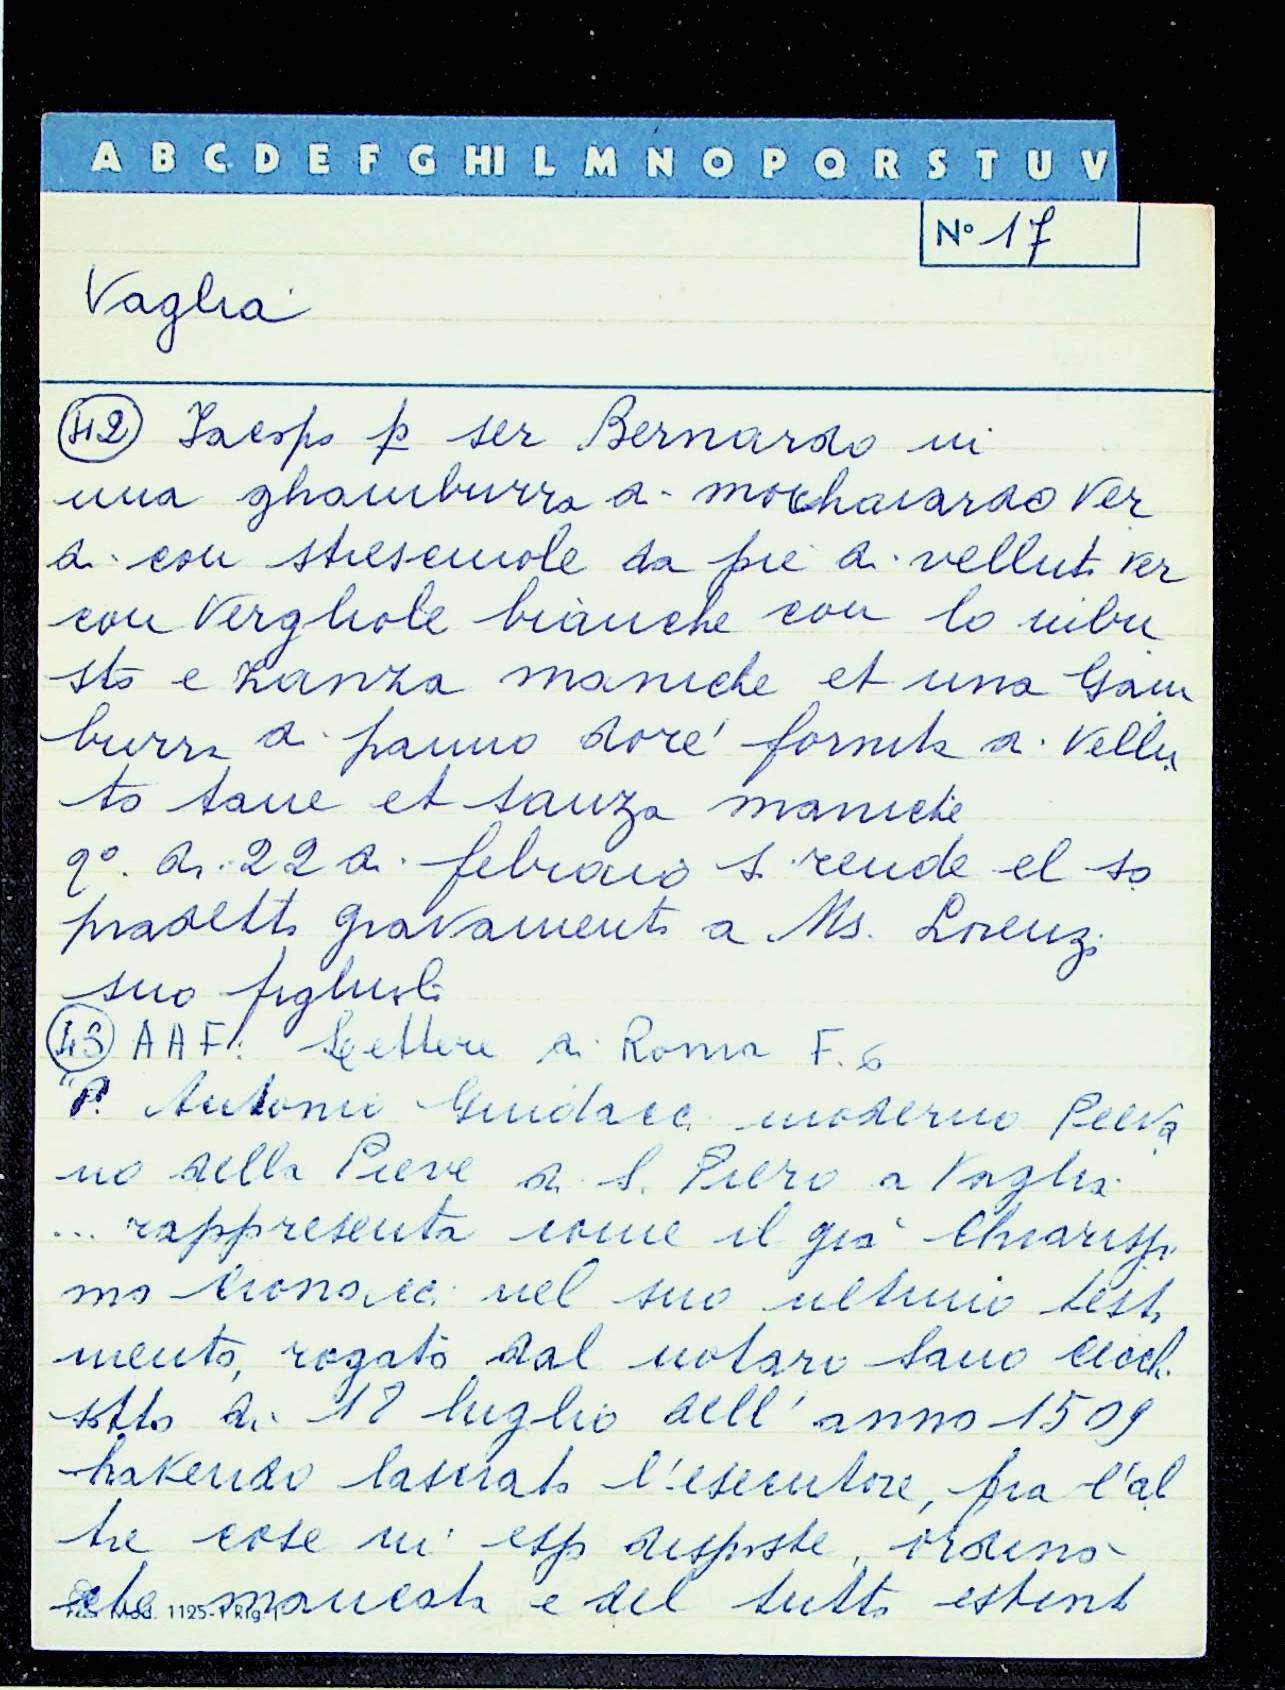 A B C D E F G HI L M N O P Q R S T U V
N° 17
Vaglia
42 Iacopo p ser Bernardo in
una ghamburra di mochaiardo ver
di con stresciuole da piè di velluti ver
con verghole bianche con lo inbu
sto e zanza maniche et una Gam
burra di panno dorè fornita di vellu
to tane et sanza maniche
q° dì 22 di febraio si rende el so
pradetto gravamento a Ms. Lorenzo
suo figliuolo
43 AAF: Lettere di Roma F. 6
"P. Antonio Guidacci moderno Pieva
no della Pieve di S. Piero a Vaglia
... rappresenta come il già Chiarissi
mo nel suo ultimo testa
mento, rogato dal notaro
sotto dì 18 luglio dell' anno 1509
havendo lasciato l'esecutore, fra l'al
tre cose in esso disposte, ordinò
che mancata e del tutto estinta
Mod. 1125-1 Rig.